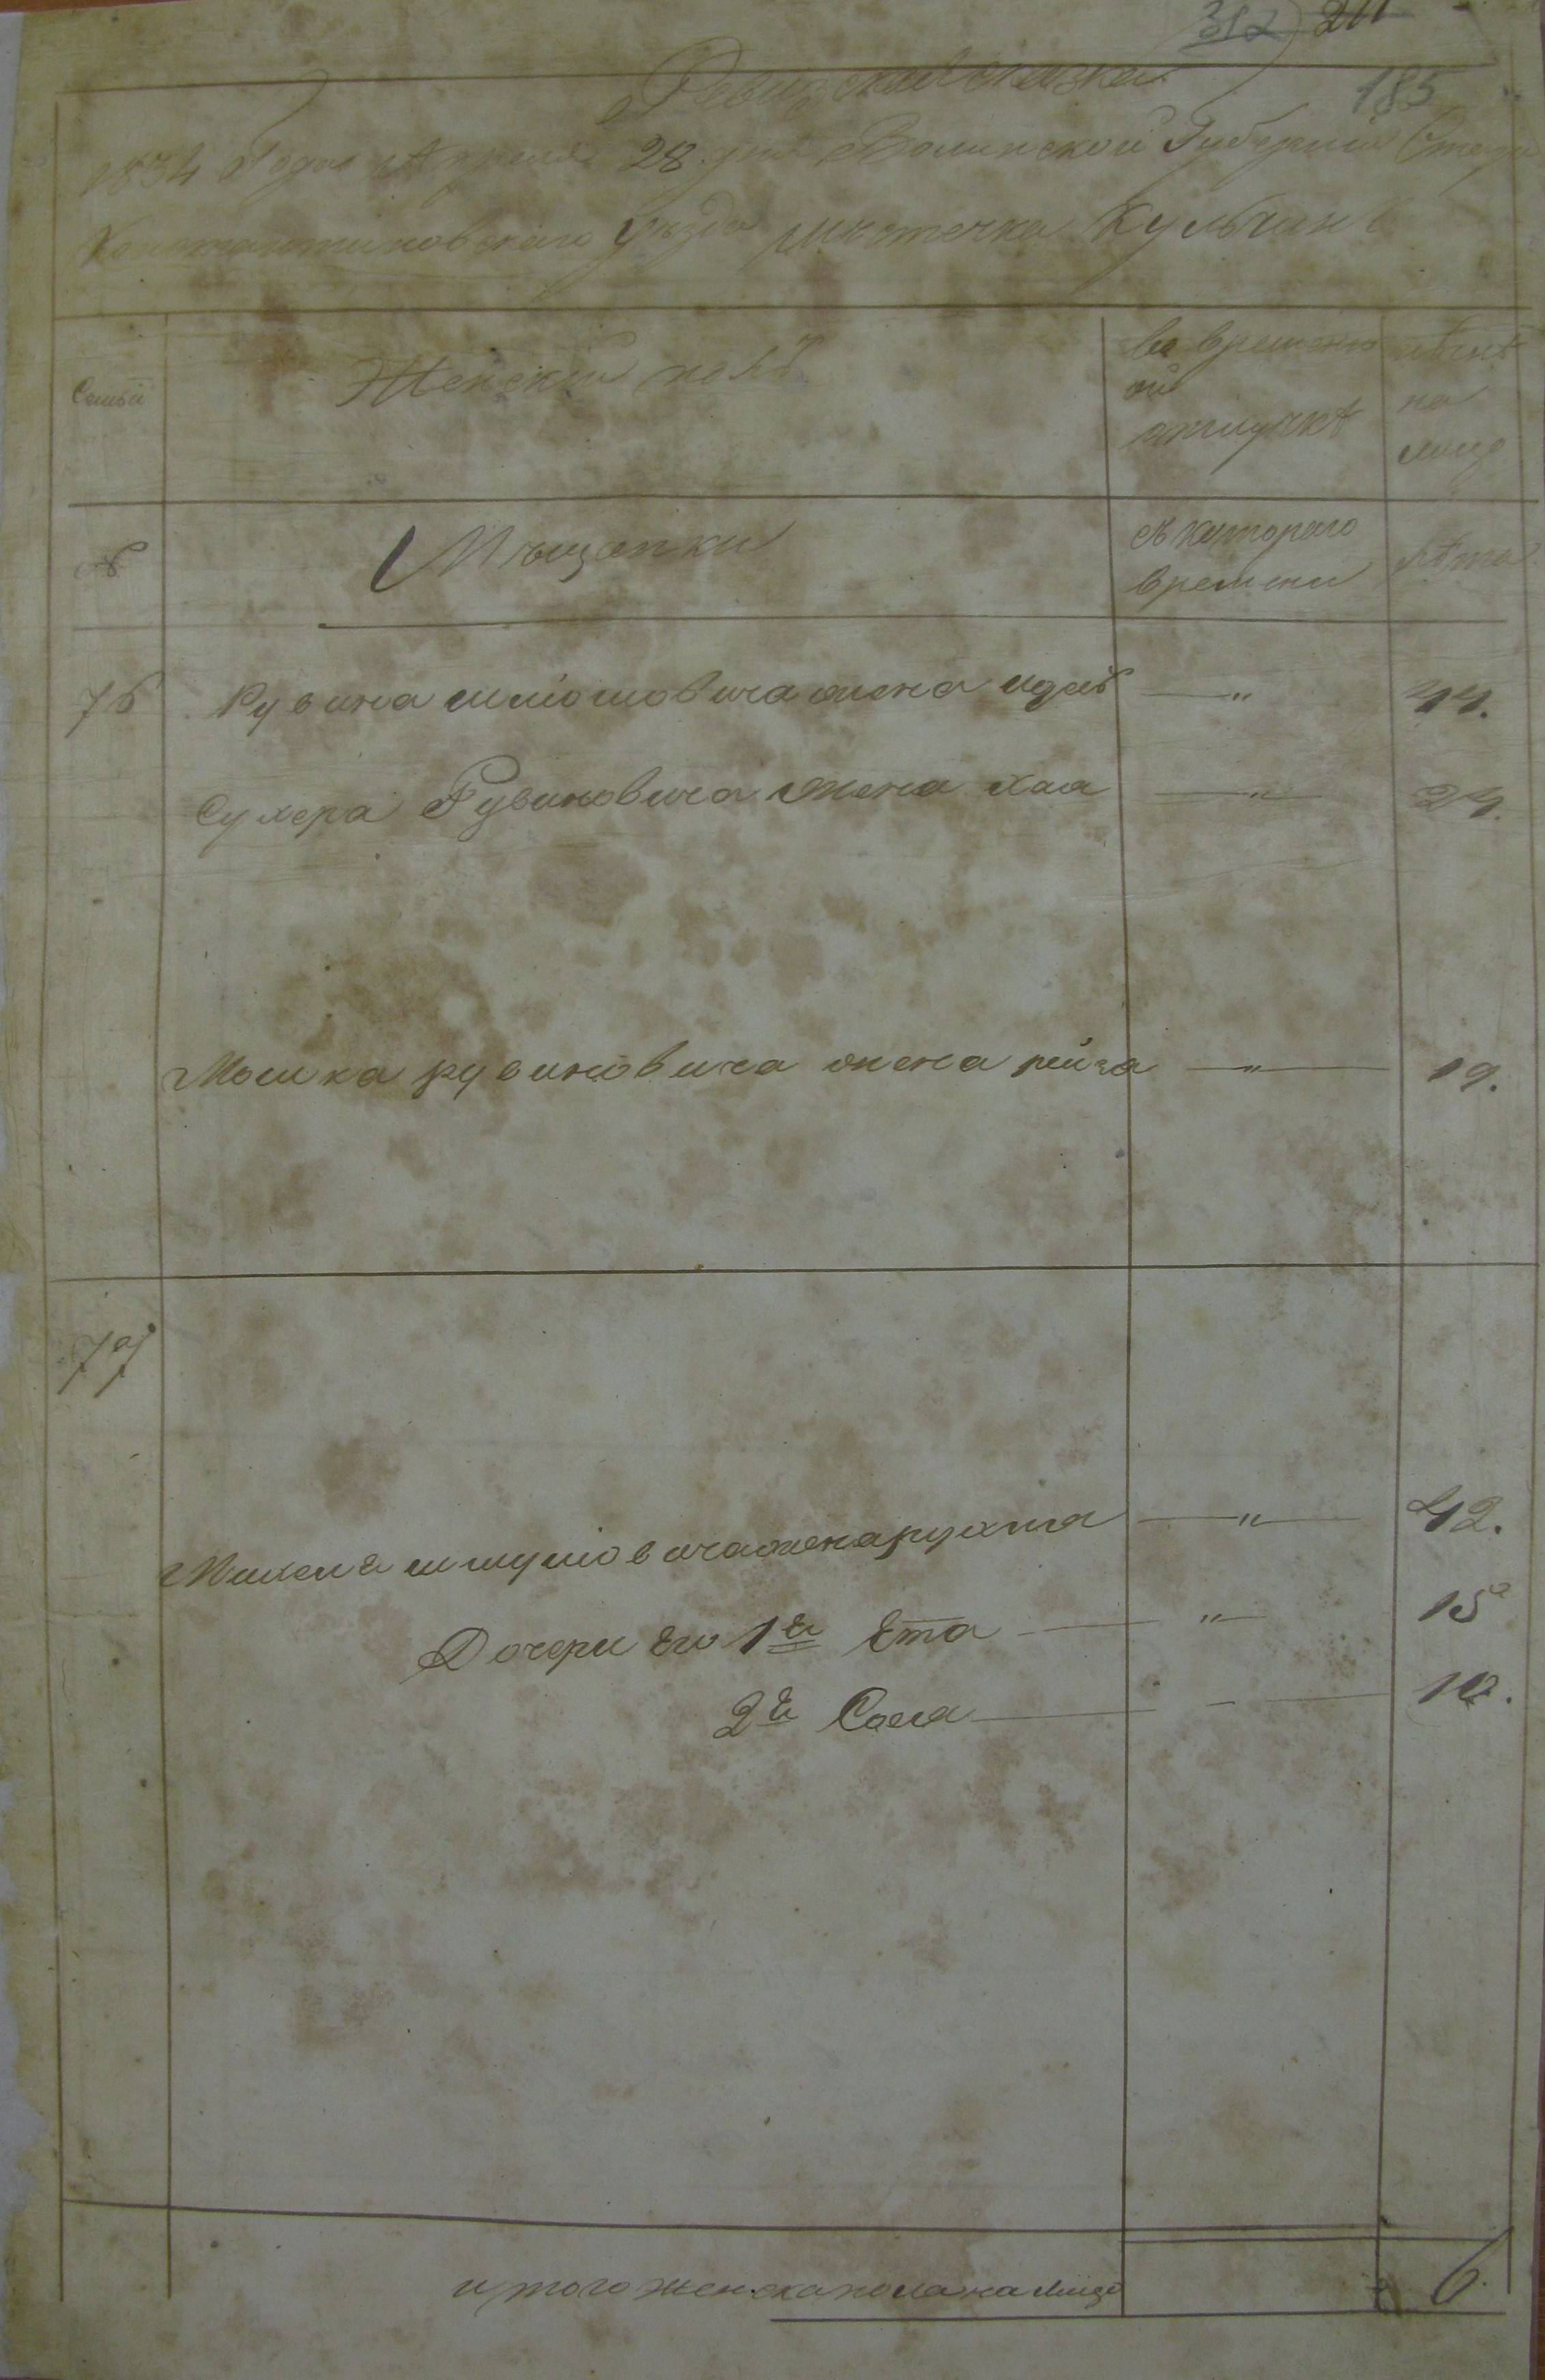 312 211
185
Ревизская сказка
1834 Года Апреля 28 дня Волинской Губерніи Старо
Константиновскаго уѣзда мѣстечка Кульчин
Семьи
Женский полъ
во временн
ой
отлучкѣ
на
лицо
№
Мѣщанки
съ котораго
времени
лѣта
76 Рувина шліомовича жена идес — " — 44.
Сухера Рувиновича жена хая — " — 24.
Мошка рувиновича жена рейза — " — 19.
77
Михеля шмуліовича жена рухля — " — 42.
Дочери Его 1я Ета — " — 15
2я Сося — 10.
итого женска пола на лицо 6.